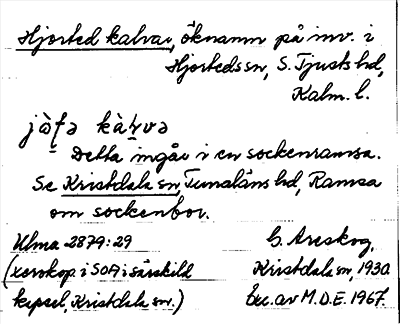 Hjorted kalvar, öknamn på inv. i
Hjorteds sn, S. Tjusts hd,
Kalm. l.
jò̱ʈə kàɽvə
Detta ingår i en sockenramsa.
Se Kristdala sn, Tunaläns hd, Ramsa
om sockenbor.
Ulma 2879:29
G. Areskog,
(xerokop. i SOA i särskild
Kristdala sn, 1930.
kapsel, Kristdala sn.)
Exc. av M.D.E. 1967.